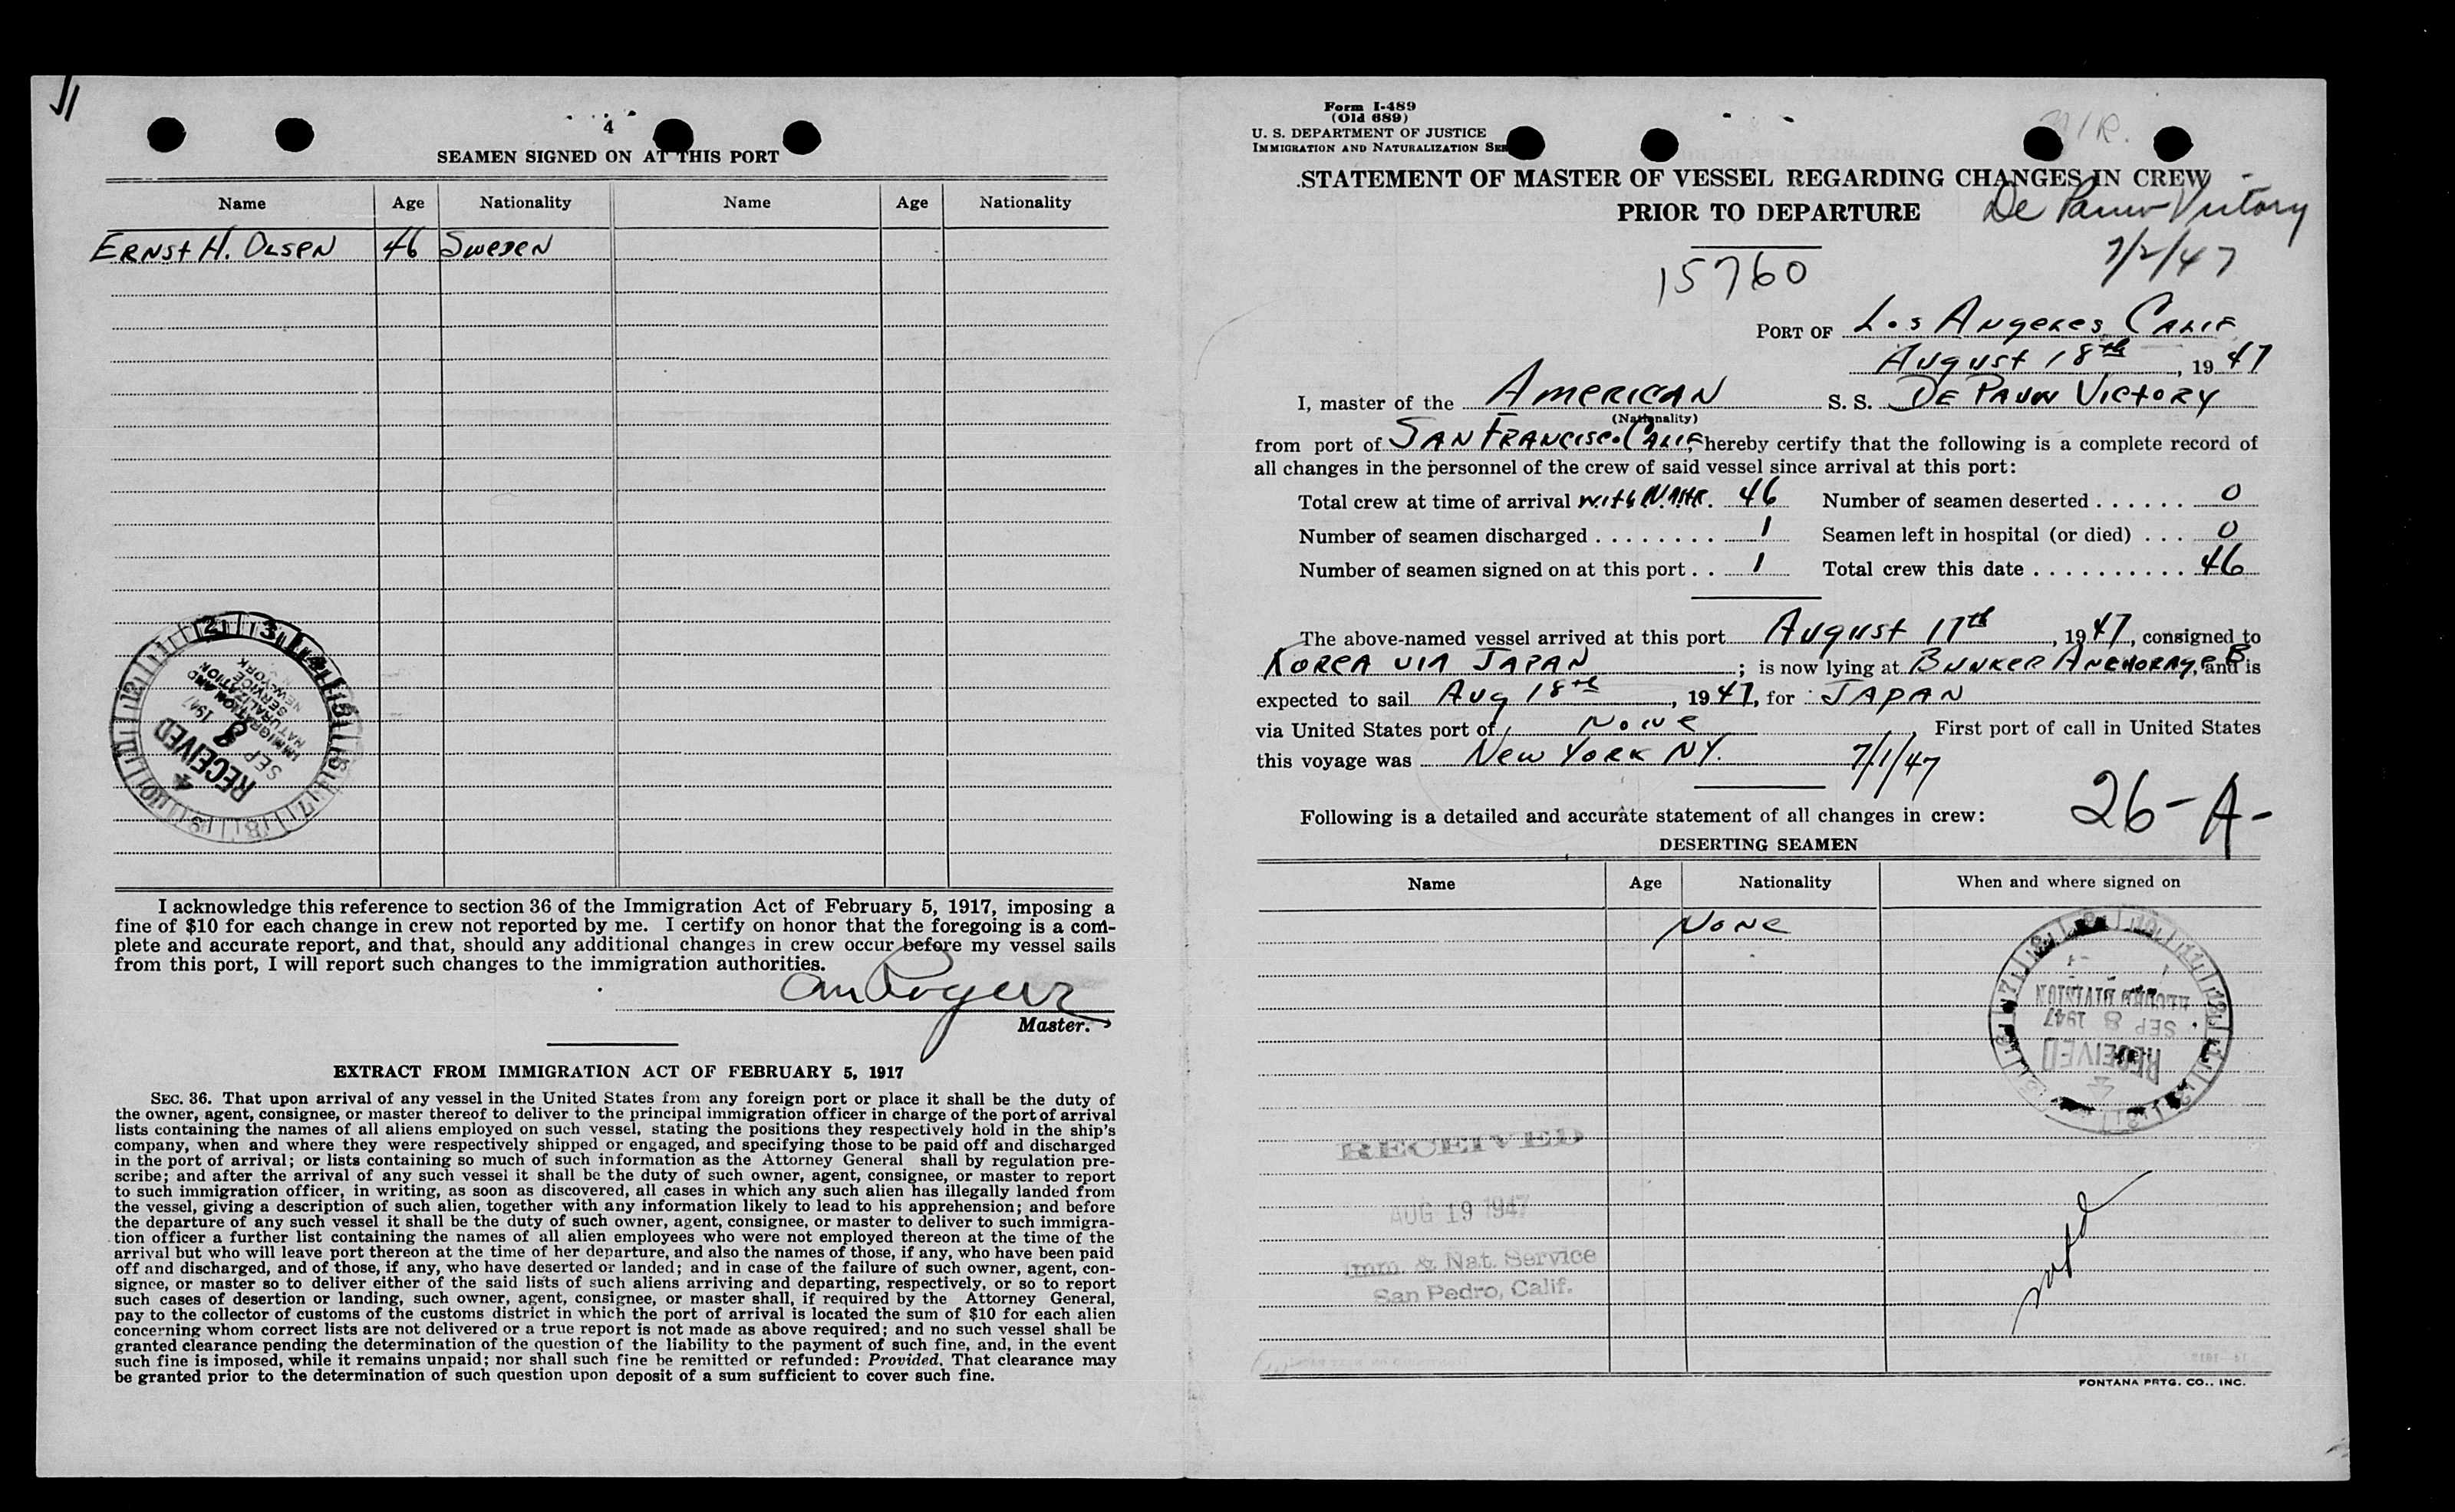 4
SEAMEN SIGNED ON AT THIS PORT
Name Age Nationality Name Age Nationality
ERNSt H. OLSEN 46 SWEDEN
RECEIVED
SEP 8 1947
IMMIGRATION AND
NATURALIZATION
SERVICE
NEW YORK
I acknowledge this reference to section 36 of the Immigration Act of February 5, 1917, imposing a
fine of $10 for each change in crew not reported by me. I certify on honor that the foregoing is a com-
plete and accurate report, and that, should any additional changes in crew occur before my vessel sails
from this port, I will report such changes to the immigration authorities.
Rogers
Master.
EXTRACT FROM IMMIGRATION ACT OF FEBRUARY 5, 1917
SEC. 36. That upon arrival of any vessel in the United States from any foreign port or place it shall be the duty of
the owner, agent, consignee, or master thereof to deliver to the principal immigration officer in charge of the port of arrival
lists containing the names of all aliens employed on such vessel, stating the positions they respectively hold in the ship's
company, when and where they were respectively shipped or engaged, and specifying those to be paid off and discharged
in the port of arrival; or lists containing so much of such information as the Attorney General shall by regulation pre-
scribe; and after the arrival of any such vessel it shall be the duty of such owner, agent, consignee, or master to report
to such immigration officer, in writing, as soon as discovered, all cases in which any such alien has illegally landed from
the vessel, giving a description of such alien, together with any information likely to lead to his apprehension; and before
the departure of any such vessel it shall be the duty of such owner, agent, consignee, or master to deliver to such immigra-
tion officer a further list containing the names of all alien employees who were not employed thereon at the time of the
arrival but who will leave port thereon at the time of her departure, and also the names of those, if any, who have been paid
off and discharged, and of those, if any, who have deserted or landed; and in case of the failure of such owner, agent, con-
signee, or master so to deliver either of the said lists of such aliens arriving and departing, respectively, or so to report
such cases of desertion or landing, such owner, agent, consignee, or master shall, if required by the Attorney General,
pay to the collector of customs of the customs district in which the port of arrival is located the sum of $10 for each alien
concerning whom correct lists are not delivered or a true report is not made as above required; and no such vessel shall be
granted clearance pending the determination of the question of the liability to the payment of such fine, and, in the event
such fine is imposed, while it remains unpaid; nor shall such fine be remitted or refunded: Provided, That clearance may
be granted prior to the determination of such question upon deposit of a sum sufficient to cover such fine.
Form I-489
(Old 689)
U. S. DEPARTMENT OF JUSTICE
IMMIGRATION AND NATURALIZATION SER
STATEMENT OF MASTER OF VESSEL REGARDING CHANGES IN CREW
PRIOR TO DEPARTURE
De Pauw Victory
7/2/47
15760
PORT OF Los Angeles, CALIF
August 18th, 1947
I, master of the AMERICAN S. S. DE PAUW VICTORY
(Nationality)
from port of SAN FRANCISCO CALIF, hereby certify that the following is a complete record of
all changes in the personnel of the crew of said vessel since arrival at this port:
Total crew at time of arrival with Mstr. 46 Number of seamen deserted . . . . . . 0
Number of seamen discharged . . . . . . . . 1 Seamen left in hospital (or died) . . . 0
Number of seamen signed on at this port . . 1 Total crew this date . . . . . . . . . . 46
The above-named vessel arrived at this port August 17th, 1947, consigned to
KOREA VIA JAPAN ; is now lying at BUNKER ANCHORAGE B, and is
expected to sail Aug 18th, 1947, for JAPAN
via United States port of NONE First port of call in United States
this voyage was New York NY. 7/1/47
26-A-
Following is a detailed and accurate statement of all changes in crew:
DESERTING SEAMEN
Name Age Nationality When and where signed on
NONE
RECEIVED
SEP 8 1947
RECORD DIVISION
RECEIVED
AUG 19 1947
Imm. & Nat. Service
San Pedro, Calif.
FONTANA PRTG. CO., INC.